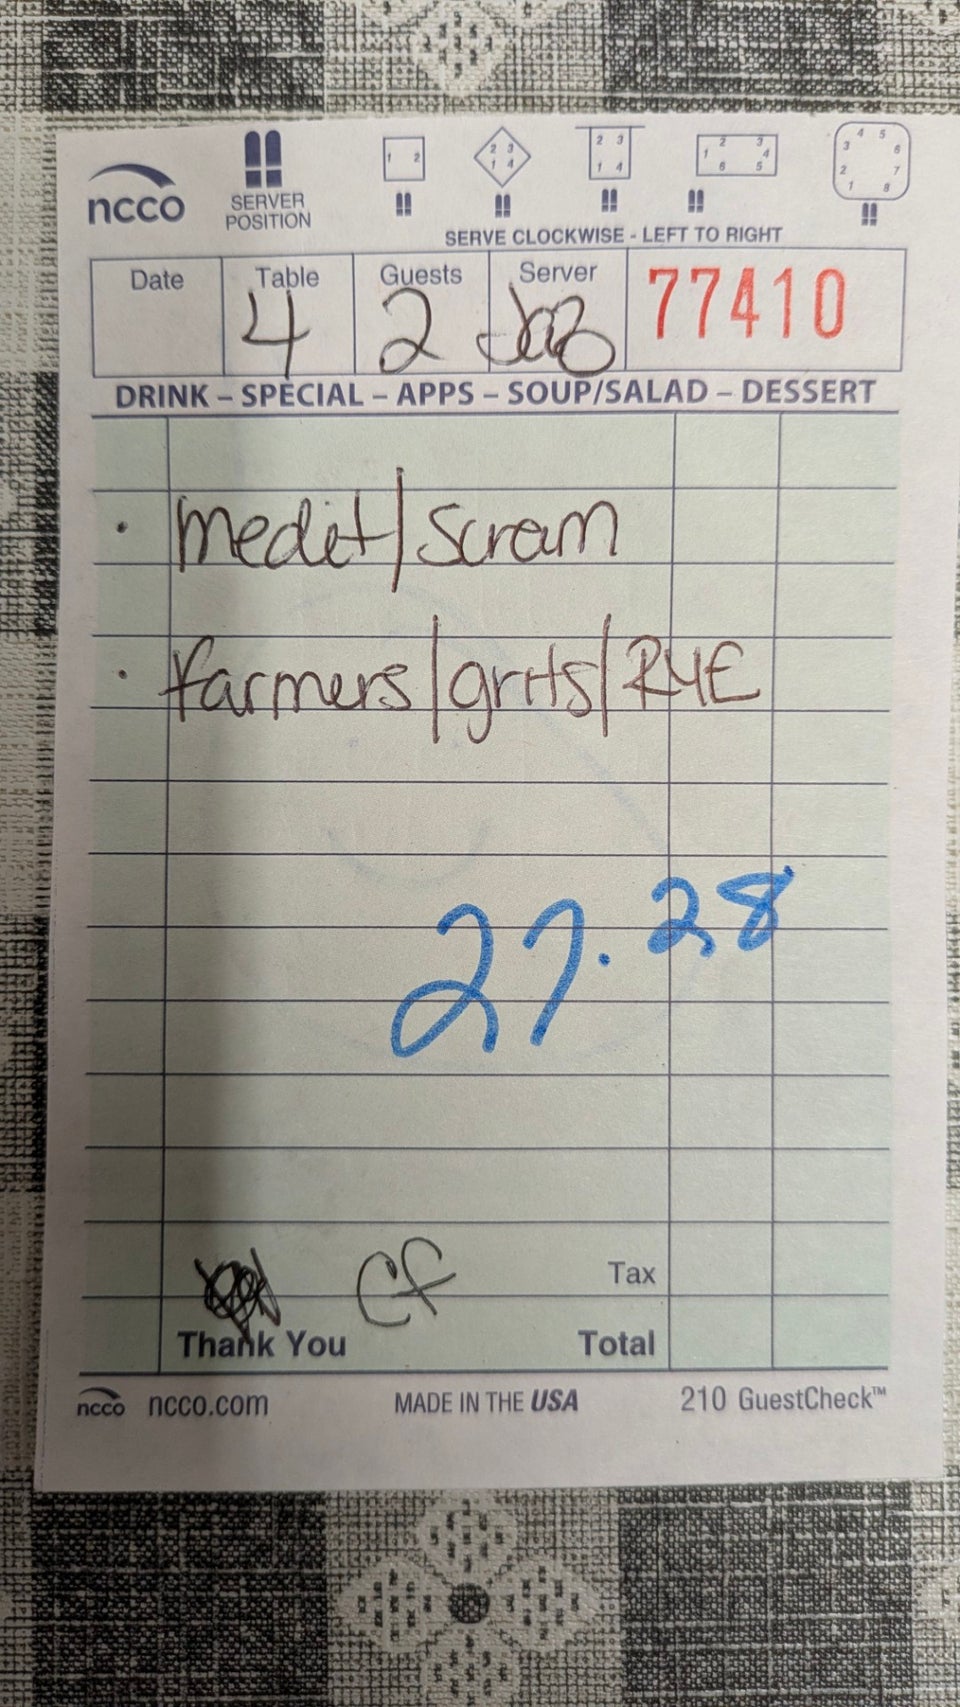 ncco
SERVER POSITION
1 2
2 3 1 4
2 3 1 4
1 2 3 4 5 6
1 2 3 4 5 6 7 8
SERVE CLOCKWISE - LEFT TO RIGHT
Date Table Guests Server
4 2 Jaz 77410
DRINK – SPECIAL – APPS – SOUP/SALAD – DESSERT
· medit/scram
· farmers/grits/RYE
27.28
Cf Tax
Thank You Total
ncco ncco.com MADE IN THE USA 210 GuestCheck™